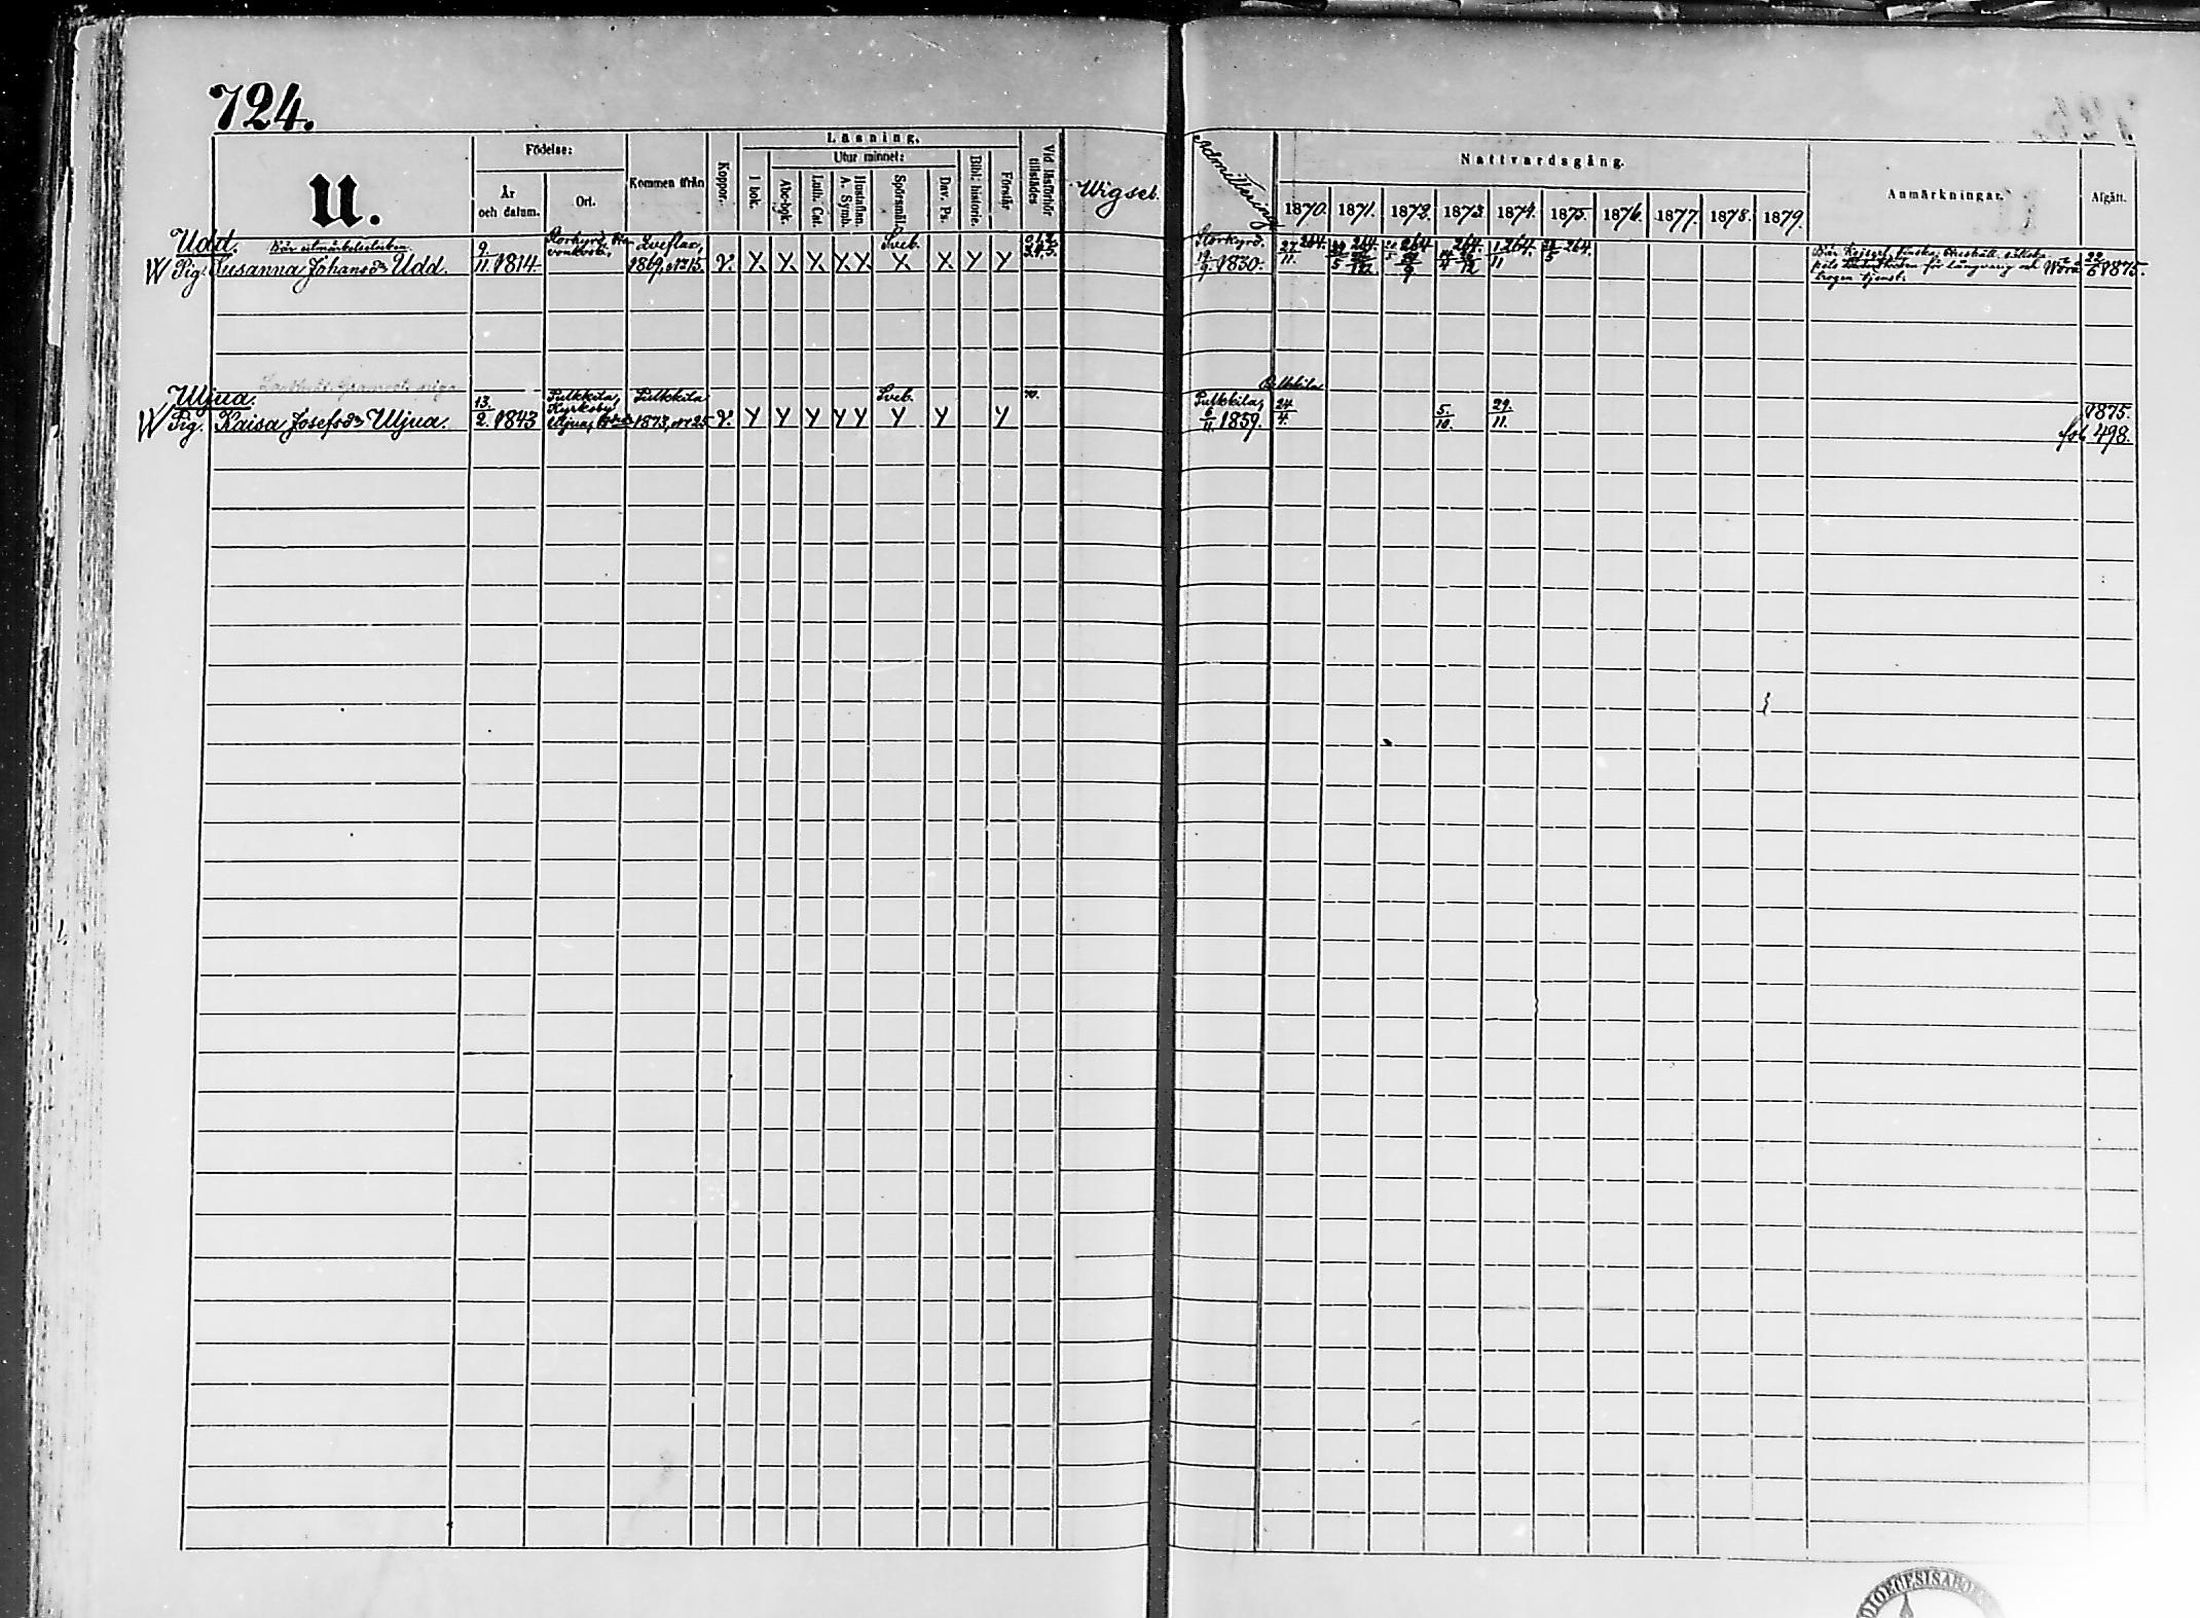 724.
U.
Födelse:
År och datum.
Ort.
Kommen ifrån
Koppor.
Läsning.
I bok.
Utur minnet:
Abc-bok.
Luth. Cat.
Hustaflan. A. Symb.
Spörsmål.
Dav. Ps.
Bibl: historie.
Förstår
Vid läsförhör tillstädes
Wigsel.
Admittering
Nattvardsgång.
1870. 1871. 1872. 1873. 1874. 1875. 1876. 1877. 1878. 1879.
Anmärkningar.
Afgått.
Udd.
W Pig. Susanna Johansdr Udd.
9/11 1814.
Storkyrö
Qveflax, 1869, nr 15.
v.
Sveb.
Storkyrö.
19/9 1830.
27/11 264. 264. 264 264. 1/11 264. 264.
för långvarig och
trogen tjenst.
Wörå 22/6 1875.
Uljua.
W Pig. Kaisa Josefsdr Uljua.
13/2 1843
Pulkkila, Kyrkoby Uljua,
Pulkkila 1873, nr 25
v.
Sveb.
Pulkkila, 6/11 1859.
Pulkkila
24/4.
5./10.
29./11.
1875.
fol. 498.